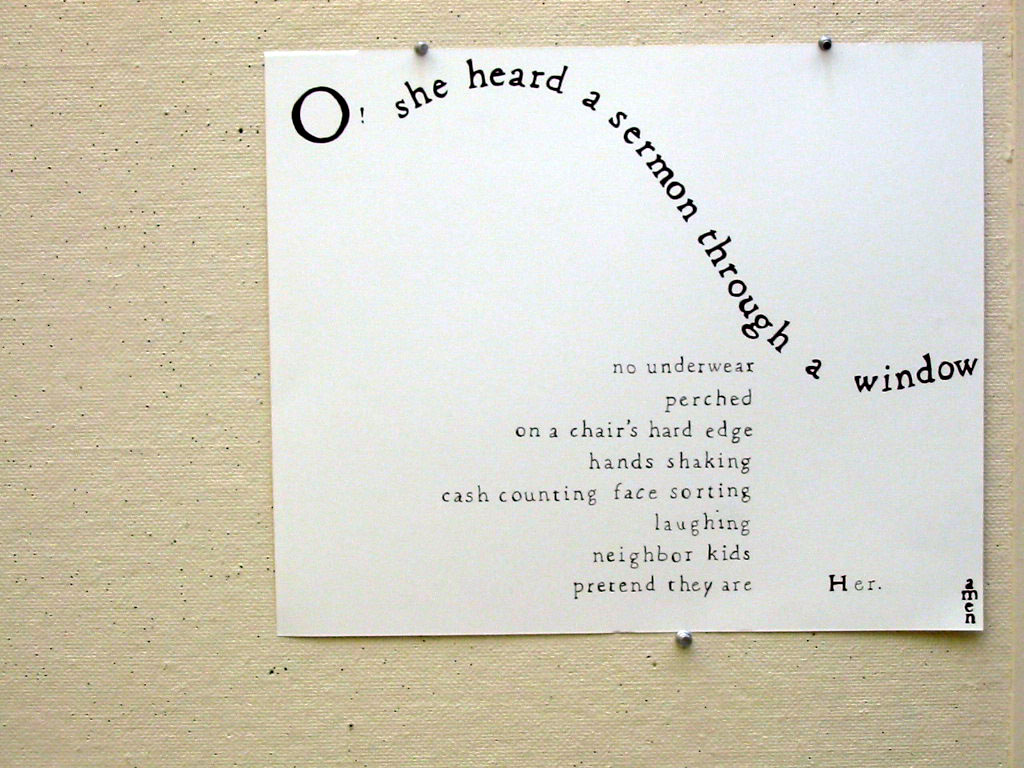 O! she heard a sermon through a window
no underwear
perched
on a chair's hard edge
hands shaking
cash counting face sorting
laughing
neighbor kids
pretend they are Her.
amen